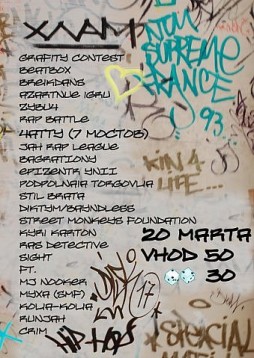 ХЛАМ
NTM
SUPREME
FRANCE
93
GRAFITY CONTEST
BEATBOX
BREIKDANS
AZARTNUE IGRU
ZYBU4
RAP BATTLE
4ATTY (7 MOCTOB)
JAH RAP LEAGUE
BAGRATIONY
EPIZENTR YNII
PODPOLNAIA TORGOVLIA
STIL BRATA
DIKTYM/BAYNDLESS
STREET MONKEYS FOUNDATION
KYRI KARTON
RAS DETECTIVE
SIGHT
FT.
MJ NOOKER
MYXA (SMF)
KOLIA-KOLIA
RUNJAH
CRIM
KIN 4
LIFE...
20 MARTA
VHOD 50
30
17
HIP-HOP
SPECIAL